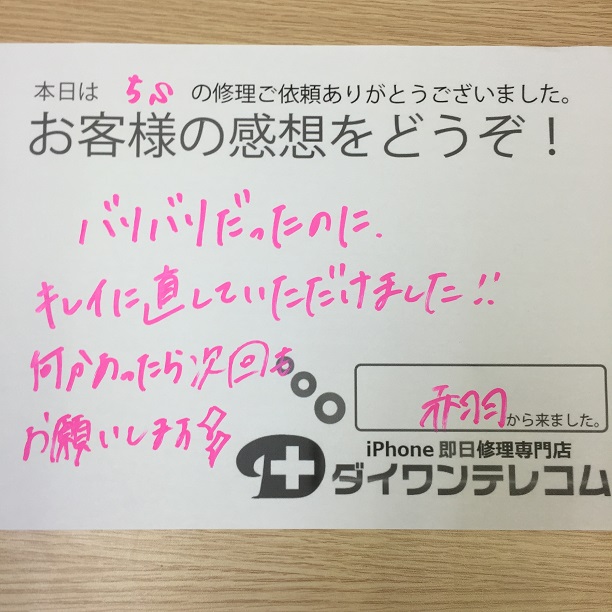 本日は 5S の修理ご依頼ありがとうございました。
お客様の感想をどうぞ！
バリバリだったのに.
キレイに直していただけました!!
何かあったら次回も
お願いします
赤羽から来ました。
iPhone 即日修理専門店
ダイワンテレコム